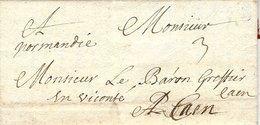 A Monsieur
normandie 3
Monsieur Le Baron
Caen
En Viconte A Caen